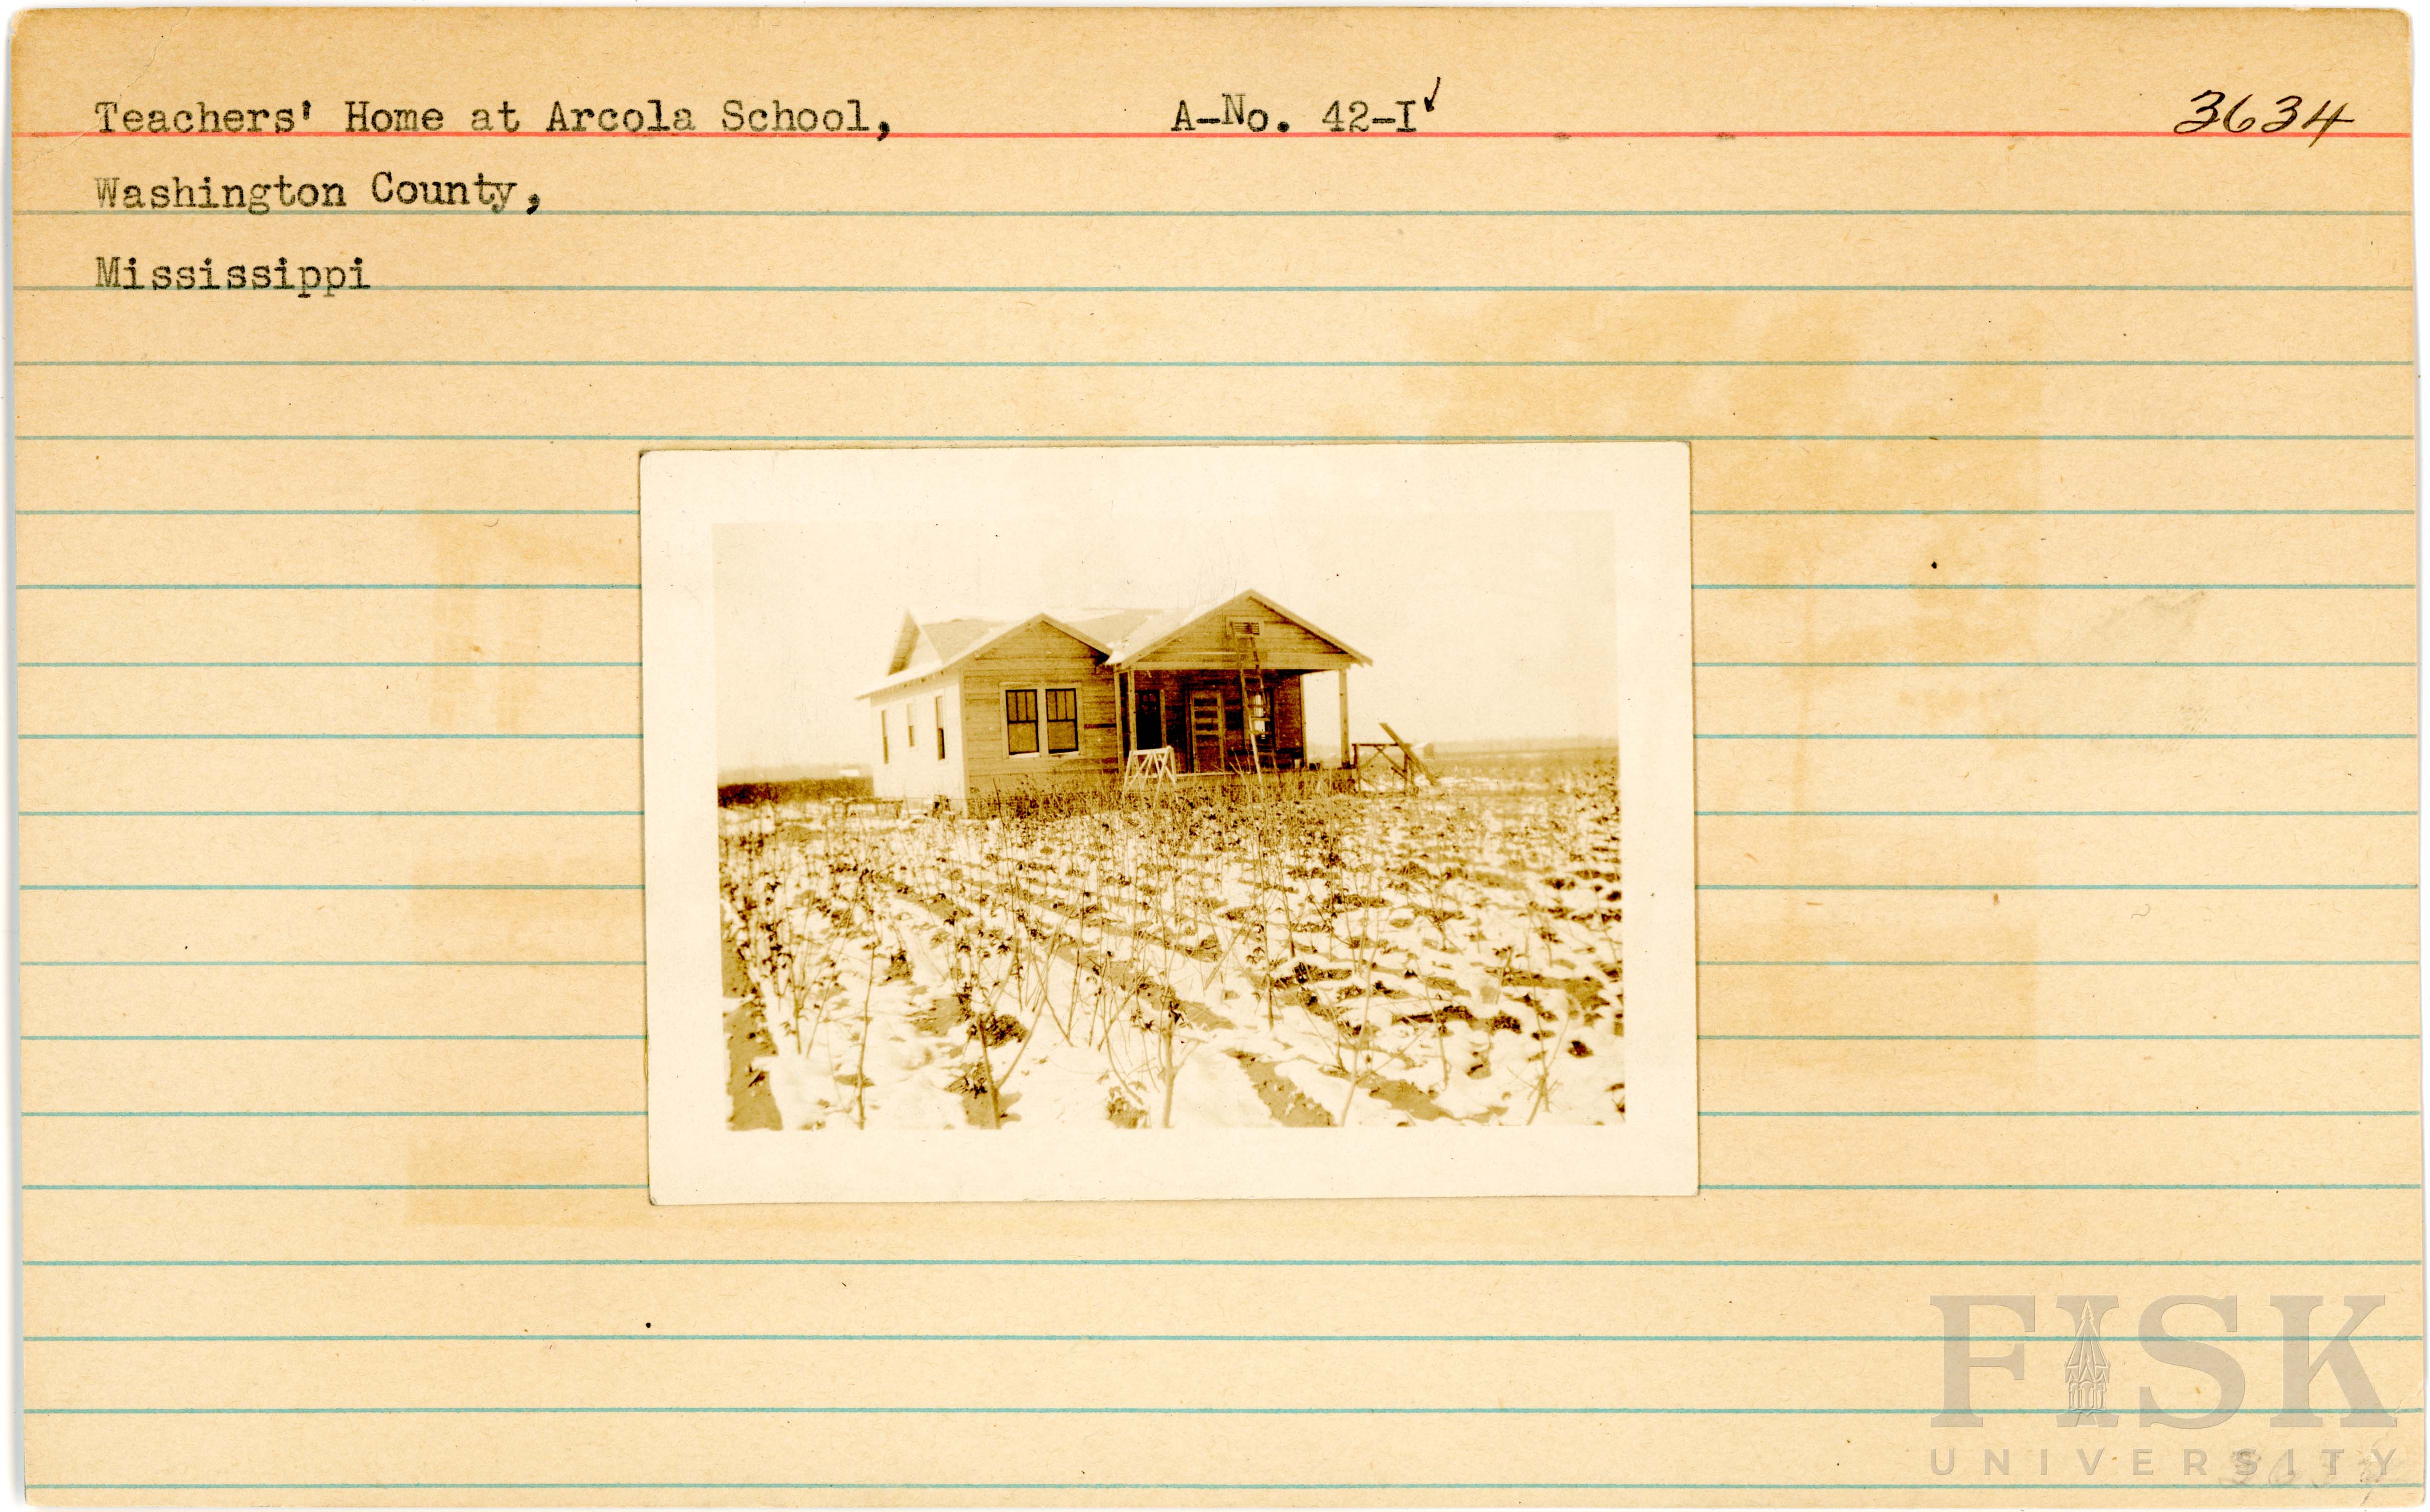 Teachers' Home at Arcola School, A-No. 42-I 3634
Washington County,
Mississippi
FISK
UNIVERSITY
3634